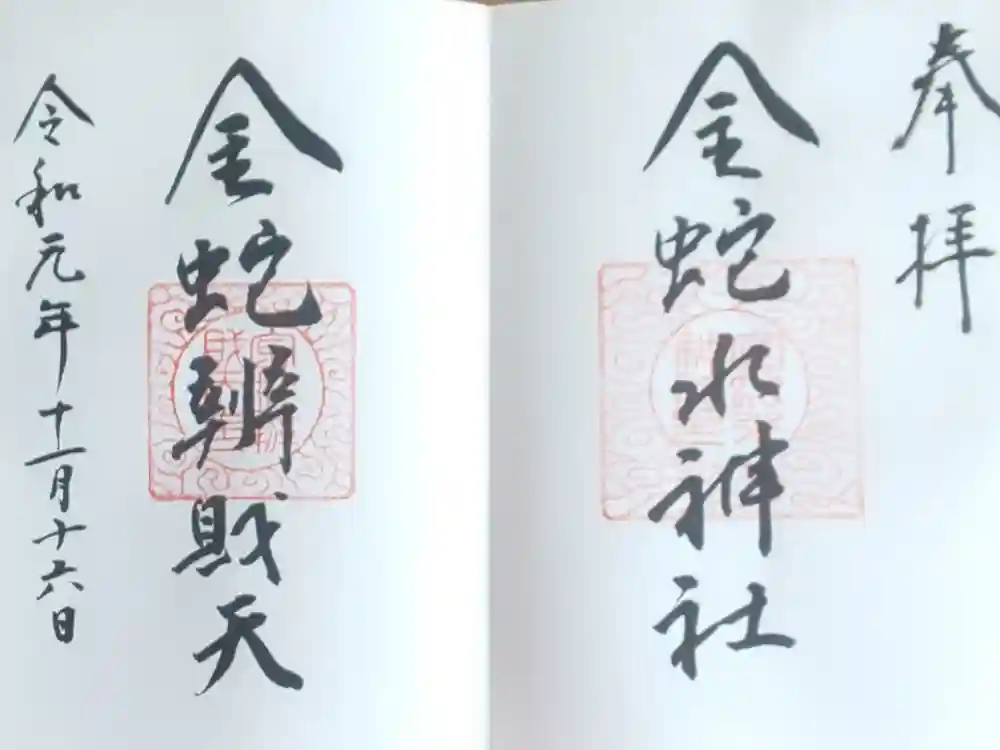 奉拝
金蛇水神社
金蛇辨財天
令和元年十一月十六日